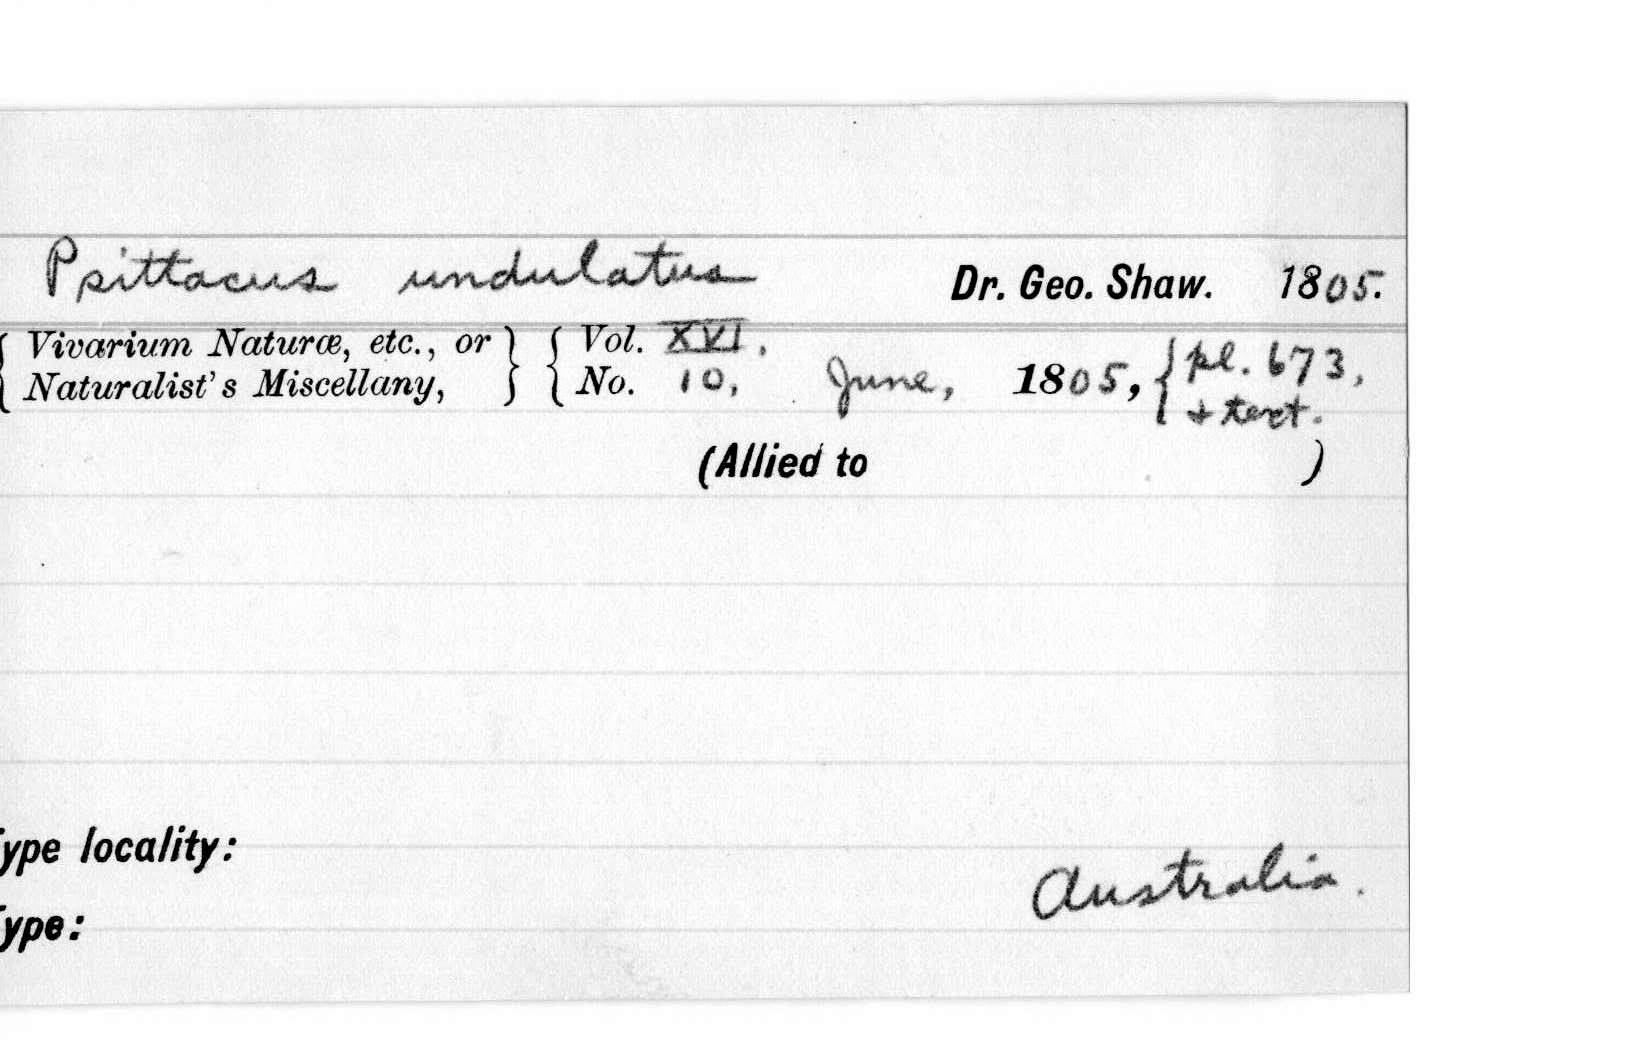 Psittacus undulatus Dr. Geo. Shaw. 1805.
{ Vivarium Naturæ, etc., or } { Vol. XVI.
{ Naturalist's Miscellany, } { No. 10, June, 1805, { pl. 673,
+ text.
(Allied to )
Type locality:
Australia.
Type: